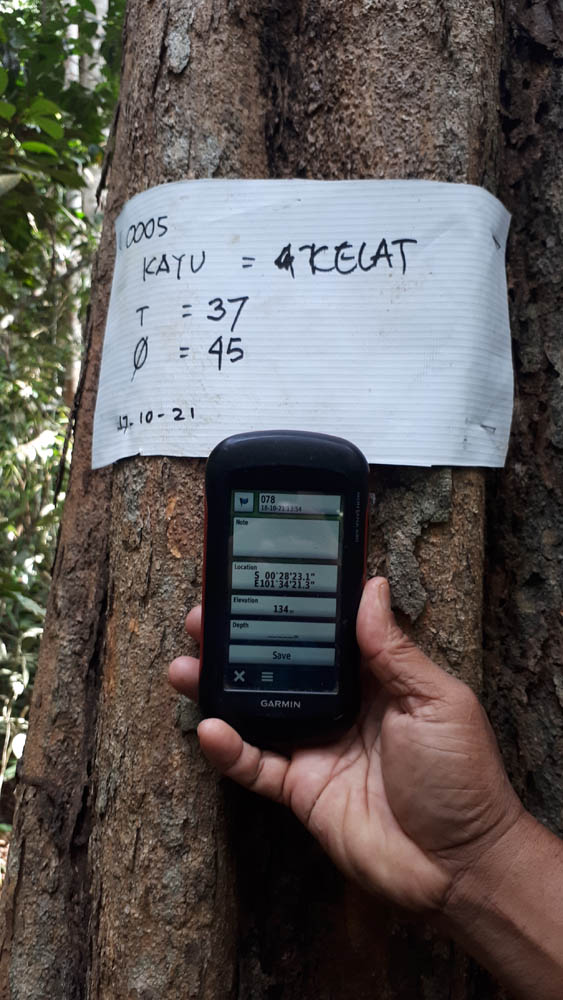 0005
KAYU = KELAT
T = 37
Ø = 45
17-10-21
078
Note
Location
S 00°28'23.1"
E101°34'21.3"
Elevation
134 m
Depth
Save
GARMIN